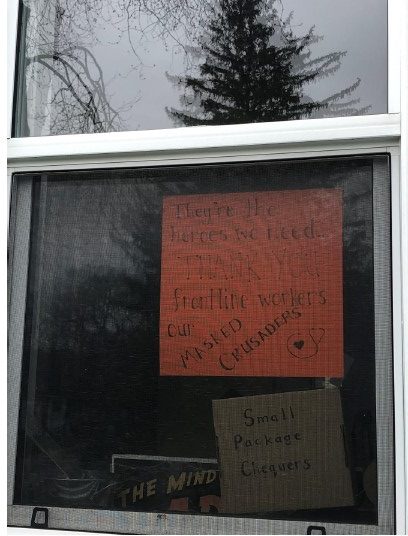 They're the
heroes we need...
THANK YOU
frontline workers
our MASKED
CRUSADERS
Small
Package
Chequers
THE MIND